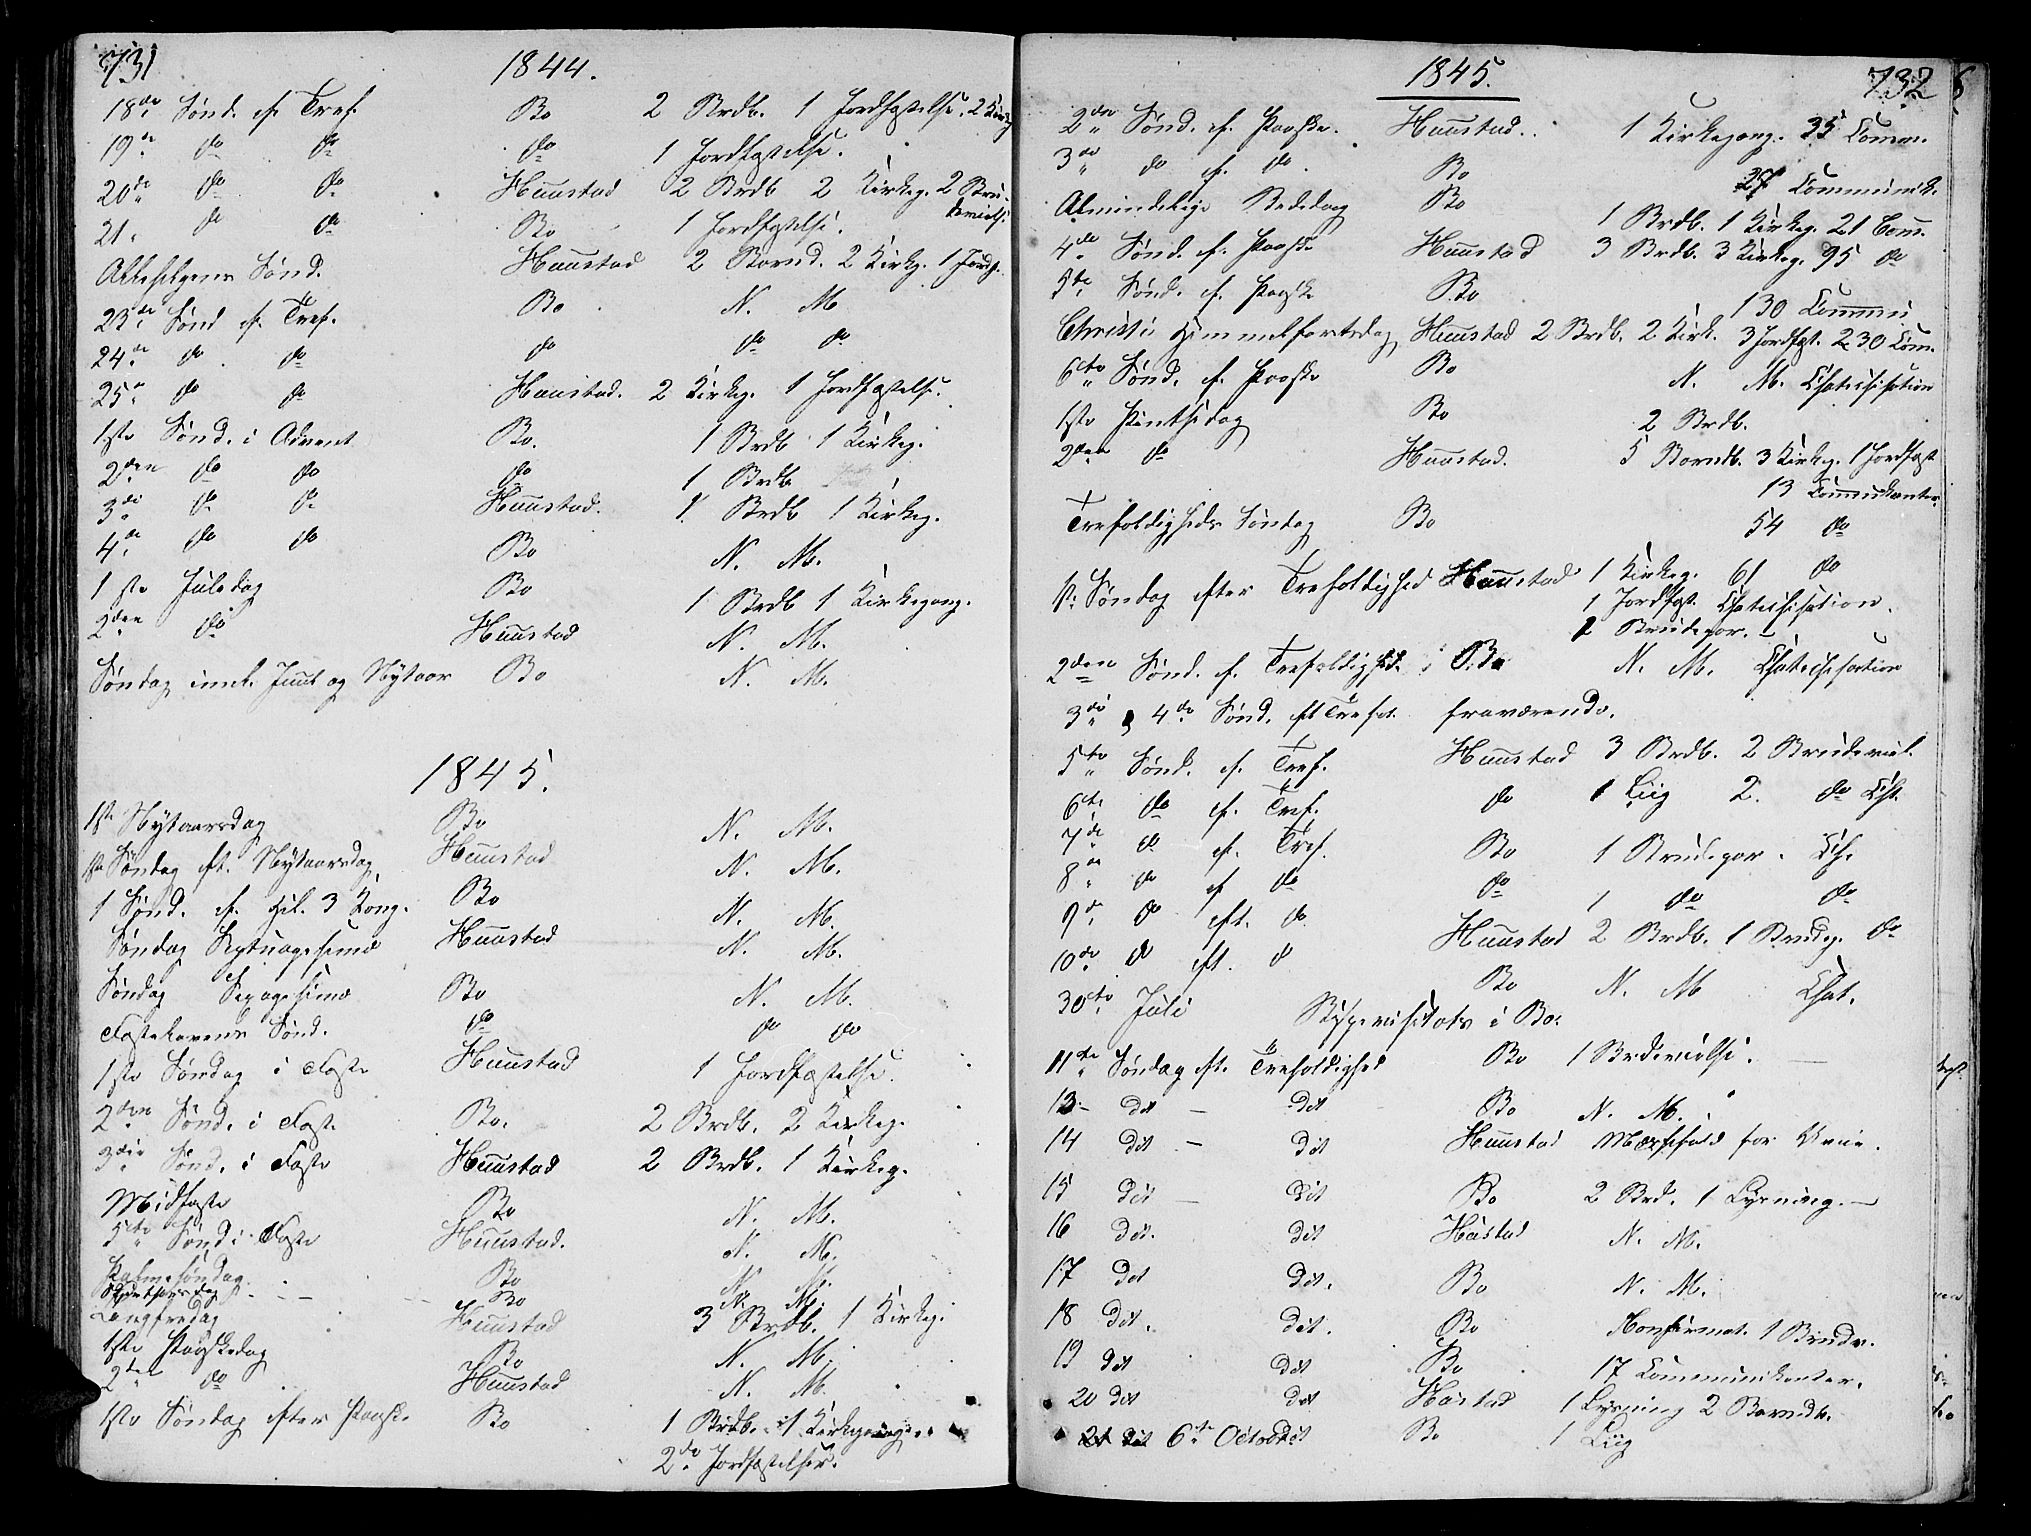 731
1844.
18de Sønd. ef. Tref. Bo 2 Brdb. 1 Jordfæstelse. 2 Kirkeg
19de do do do 1 Jordfæstelse.
20de do do Huustad 2 Brdb 2 Kirkeg. 2 Bru-
devielse
21. do do Bo 1 Jordfæstelse.
Allehelgens Sønd. Huustad 2 Barnd. 2 Kirkeg. 1 Jordf.
23de Sønd ef. Tref. Bo N. M
24de do do do do do
25de do do Huustad. 2 Kirkeg. 1 Jordfæstelse.
1ste Sønd. i Advent Bo. 1 Brdb 1 Kirkeg.
2den do do do 1 Brdb
3die do do Huustad. 1. Brdb 1 Kirkeg.
4de do do Bo N. M.
1ste Juledag Bo 1 Brdb 1 Kirkegang.
2den do Huustad N. M.
Søndag imel. Juul og Nytaar Bo N. M.
1845.
1ste Nytaarsdag Bo N. M.
1ste Søndag eft. Nytaarsdag Huustad N. M.
1 Sønd. ef. Hel. 3 Kong. Bo N. M.
Søndag Septuagesimæ Huustad N. M.
Søndag Sexagesimæ Bo N. M.
Fastelavens Sønd. do do do
1ste Søndag i Faste Huustad 1 Jordfæstelse.
2den Sønd. i Faste Bo. 2 Brdb. 2 Kirkeg.
3die Sønd. i Faste Huustad 2 Brdb. 1 Kirkeg.
Midfaste Bo N. M.
5te Sønd i Faste Huustad. N. M.
Palmesøndag Bo N. M.
Skjertorsdag Bo N. M.
Langfredag Huustad 3 Brdb. 1 Kirkeg.
1ste Paaskedag Bo N. M.
2den do Huustad N. M.
1ste Søndag efter Paaske Bo 1 Brdb. 1 Kirkegang.
2de Jordfæstelser.
732
1845.
2den Sønd. ef. Paaske. Huustad. 1 Kirkegang. 35 Comm.
3die do ef. do. Bo 27 Communik.
Almindelige Bededag Bo 1 Brdb. 1 Kirkeg. 21 Com.
4de Sønd. ef. Paaske Huustad 3 Brdb. 3 Kirkeg. 95 do
5te Sønd. ef. Paaske Bo 130 Commu
Christi Himmelfartsdag Huustad 2 Brdb. 2 Kirk. 3 Jordfæst. 230 Com.
6te Sønd. ef. Paaske Bo N. M. Chatechisation
1ste Pintsedag Bo 2 Brdb.
2den do Huustad. 5 Barndb. 3 Kirkeg. 1 Jordfæst
13 Communikanter.
Trefoldigheds Søndag Bo 54 do
1ste Søndag efter Trefoldighed Huustad 1 Kirkeg. 61 do
1 Jordfæst. Chatechisation.
2 Brudepar.
2den Sønd. ef. Trefoldighed. Bo N. M. Chatechisation
3die & 4de Sønd. eft Trefol. fraværende.
5te Sønd. ef. Tref. Huustad 3 Brdb. 2 Brudeviel.
6te do ef. Tref. do 1 Liig 2. do Cht.
7de do ef. Tref. Bo 1 Brudepar. Ch.
8de do ef do do 1 do do
9de do eft. do Huustad 2 Brdb. 1 Brudep. do
10de do eft. do Bo N. M Chat.
30te Juli Bispevisitats i Bo.
11te Søndag eft. Trefoldighed Bo 1 Brdevielse.
13 dit – dit Bo N. M.
14 dit – dit Huustad Messefald for Veir.
15 dit – dit Bo 2 Brd. 1 Lysning. –
16 dit. dit Hustad N. M.
17 dit dit. Bo N. M.
18 dit. dit. Bo Konfirmat. 1 Brudv.
19 dit dit Bo 17 Communikanter.
20 dit dit Hustad 1 Lysning 2 Barndb.
21 dit 6te Octob dit Bo 1 Liig